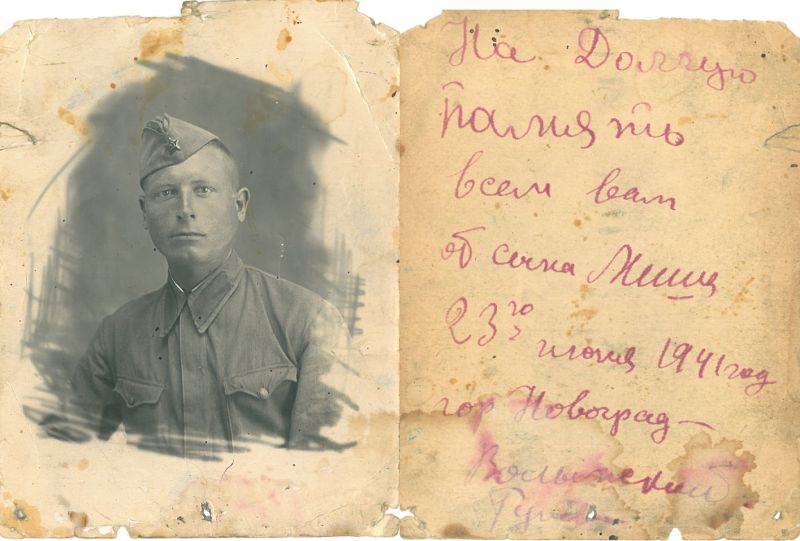 На Долгую
память
всем вам
от сына Миши
23го июня 1941 год
гор Новоград–
Волынский